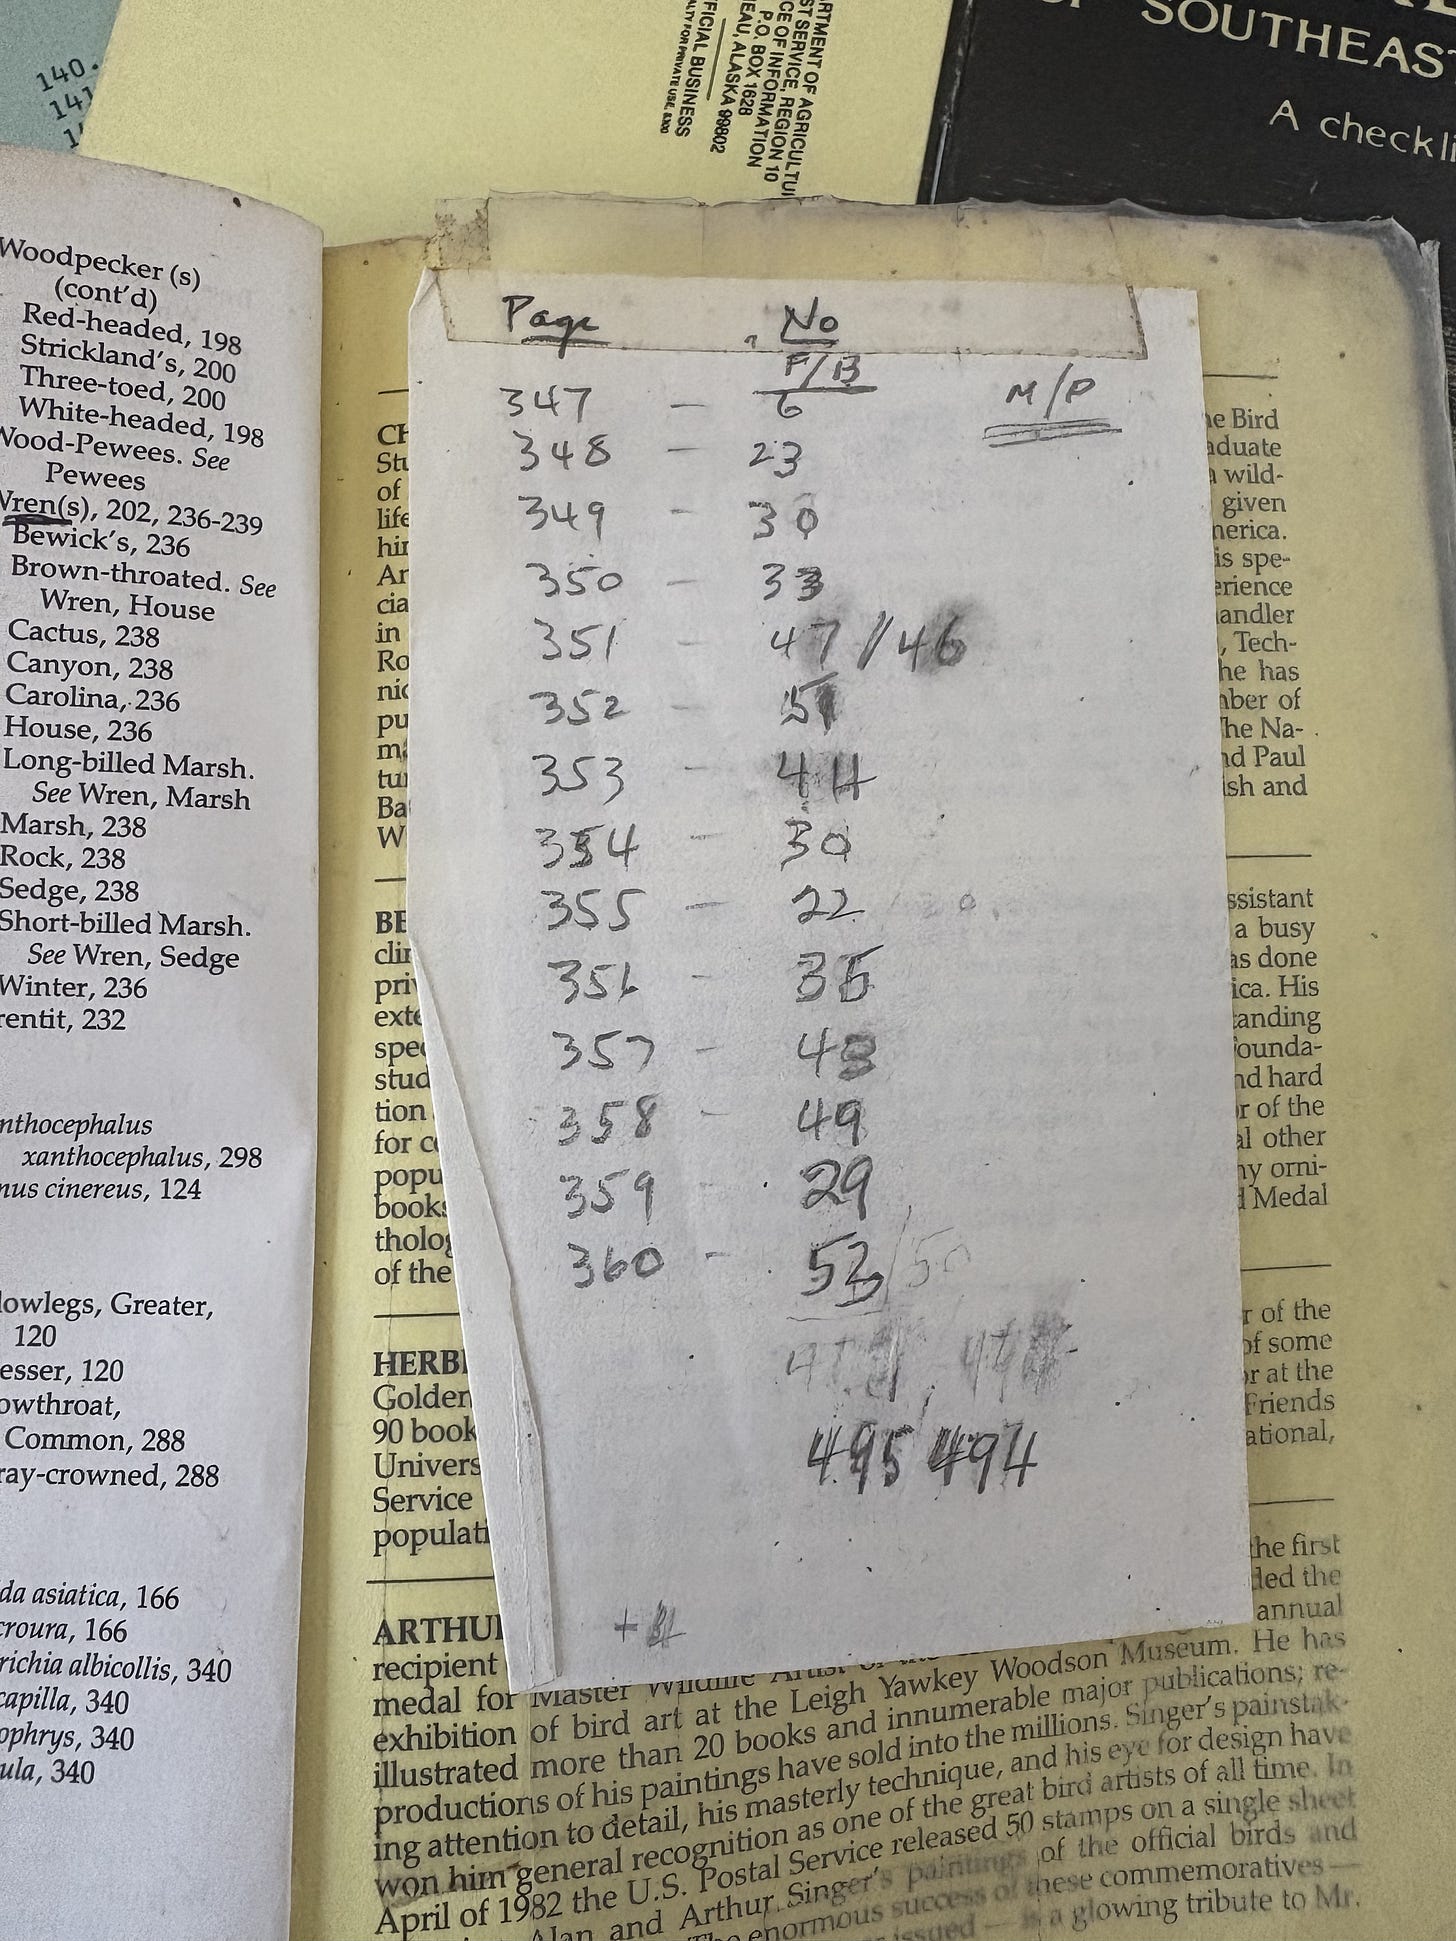 140.
141
RTMENT OF AGRICULTU
ST SERVICE, REGION 10
CE OF INFORMATION
P.O. BOX 1628
EAU, ALASKA 99802
FICIAL BUSINESS
ALTY FOR PRIVATE USE, $300
SOUTHEAS
A checkli
Woodpecker (s)
(cont'd)
Red-headed, 198
Strickland's, 200
Three-toed, 200
White-headed, 198
Wood-Pewees. See
Pewees
Wren(s), 202, 236-239
Bewick's, 236
Brown-throated. See
Wren, House
Cactus, 238
Canyon, 238
Carolina, 236
House, 236
Long-billed Marsh.
See Wren, Marsh
Marsh, 238
Rock, 238
Sedge, 238
Short-billed Marsh.
See Wren, Sedge
Winter, 236
rentit, 232
nthocephalus
xanthocephalus, 298
nus cinereus, 124
lowlegs, Greater,
120
esser, 120
owthroat,
Common, 288
ray-crowned, 288
da asiatica, 166
croura, 166
richia albicollis, 340
capilla, 340
ophrys, 340
ula, 340
Page No
F/B M/P
347 - 6
348 - 23
349 - 30
350 - 33
351 - 47/46
352 - 51
353 - 44
354 - 30
355 - 22
356 - 35
357 - 43
358 - 49
359 - 29
360 - 53/50
495 494
CH
Stu
of
life
hir
Ar
cia
in
Ro
nic
pu
ma
tur
Ba
W
BE
clin
priv
exte
spec
stud
tion
for co
popu
books
tholog
of the
HERB
Golden
90 book
Univers
Service
populati
ne Bird
aduate
a wild-
given
nerica.
is spe-
erience
andler
, Tech-
he has
nber of
he Na-
nd Paul
ish and
ssistant
a busy
as done
ica. His
tanding
founda-
nd hard
or of the
al other
ny orni-
d Medal
r of the
of some
or at the
Friends
ational,
the first
ded the
annual
ARTHUR
recipient
medal for Master Wildlife Artist of the
exhibition of bird art at the Leigh Yawkey Woodson Museum. He has
illustrated more than 20 books and innumerable major publications; re-
productions of his paintings have sold into the millions. Singer's painstak-
ing attention to detail, his masterly technique, and his eye for design have
won him general recognition as one of the great bird artists of all time. In
April of 1982 the U.S. Postal Service released 50 stamps on a single sheet
Alan and Arthur Singer's paintings of the official birds and
The enormous success of these commemoratives —
issued — is a glowing tribute to Mr.